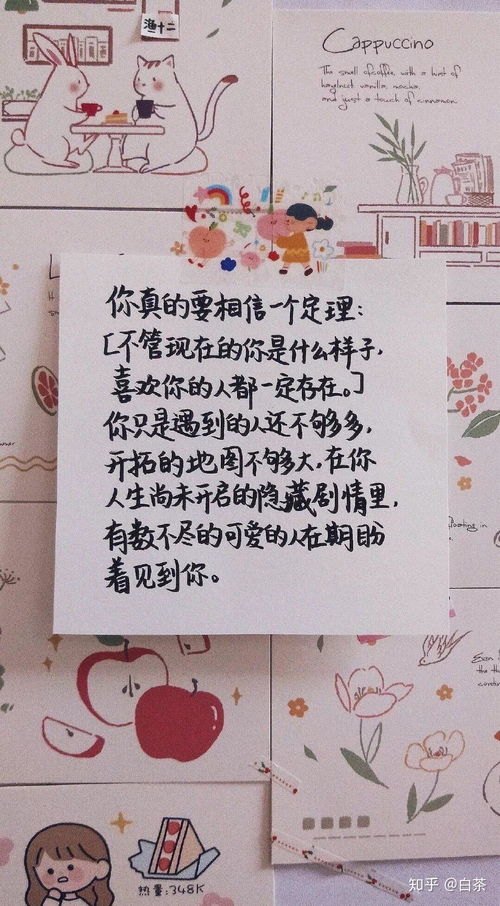 渔十二
Cappuccino
The smell of coffee with a hint of
haylnut vanilla, mocha
and just a touch of cinnamon.
你真的要相信一个定理：
[不管现在的你是什么样子，
喜欢你的人都一定存在。]
你只是遇到的人还不够多，
开拓的地图不够大，在你
人生尚未开启的隐藏剧情里，
有数不尽的可爱的人在期盼
着见到你。
热量：348K
知乎 @白茶